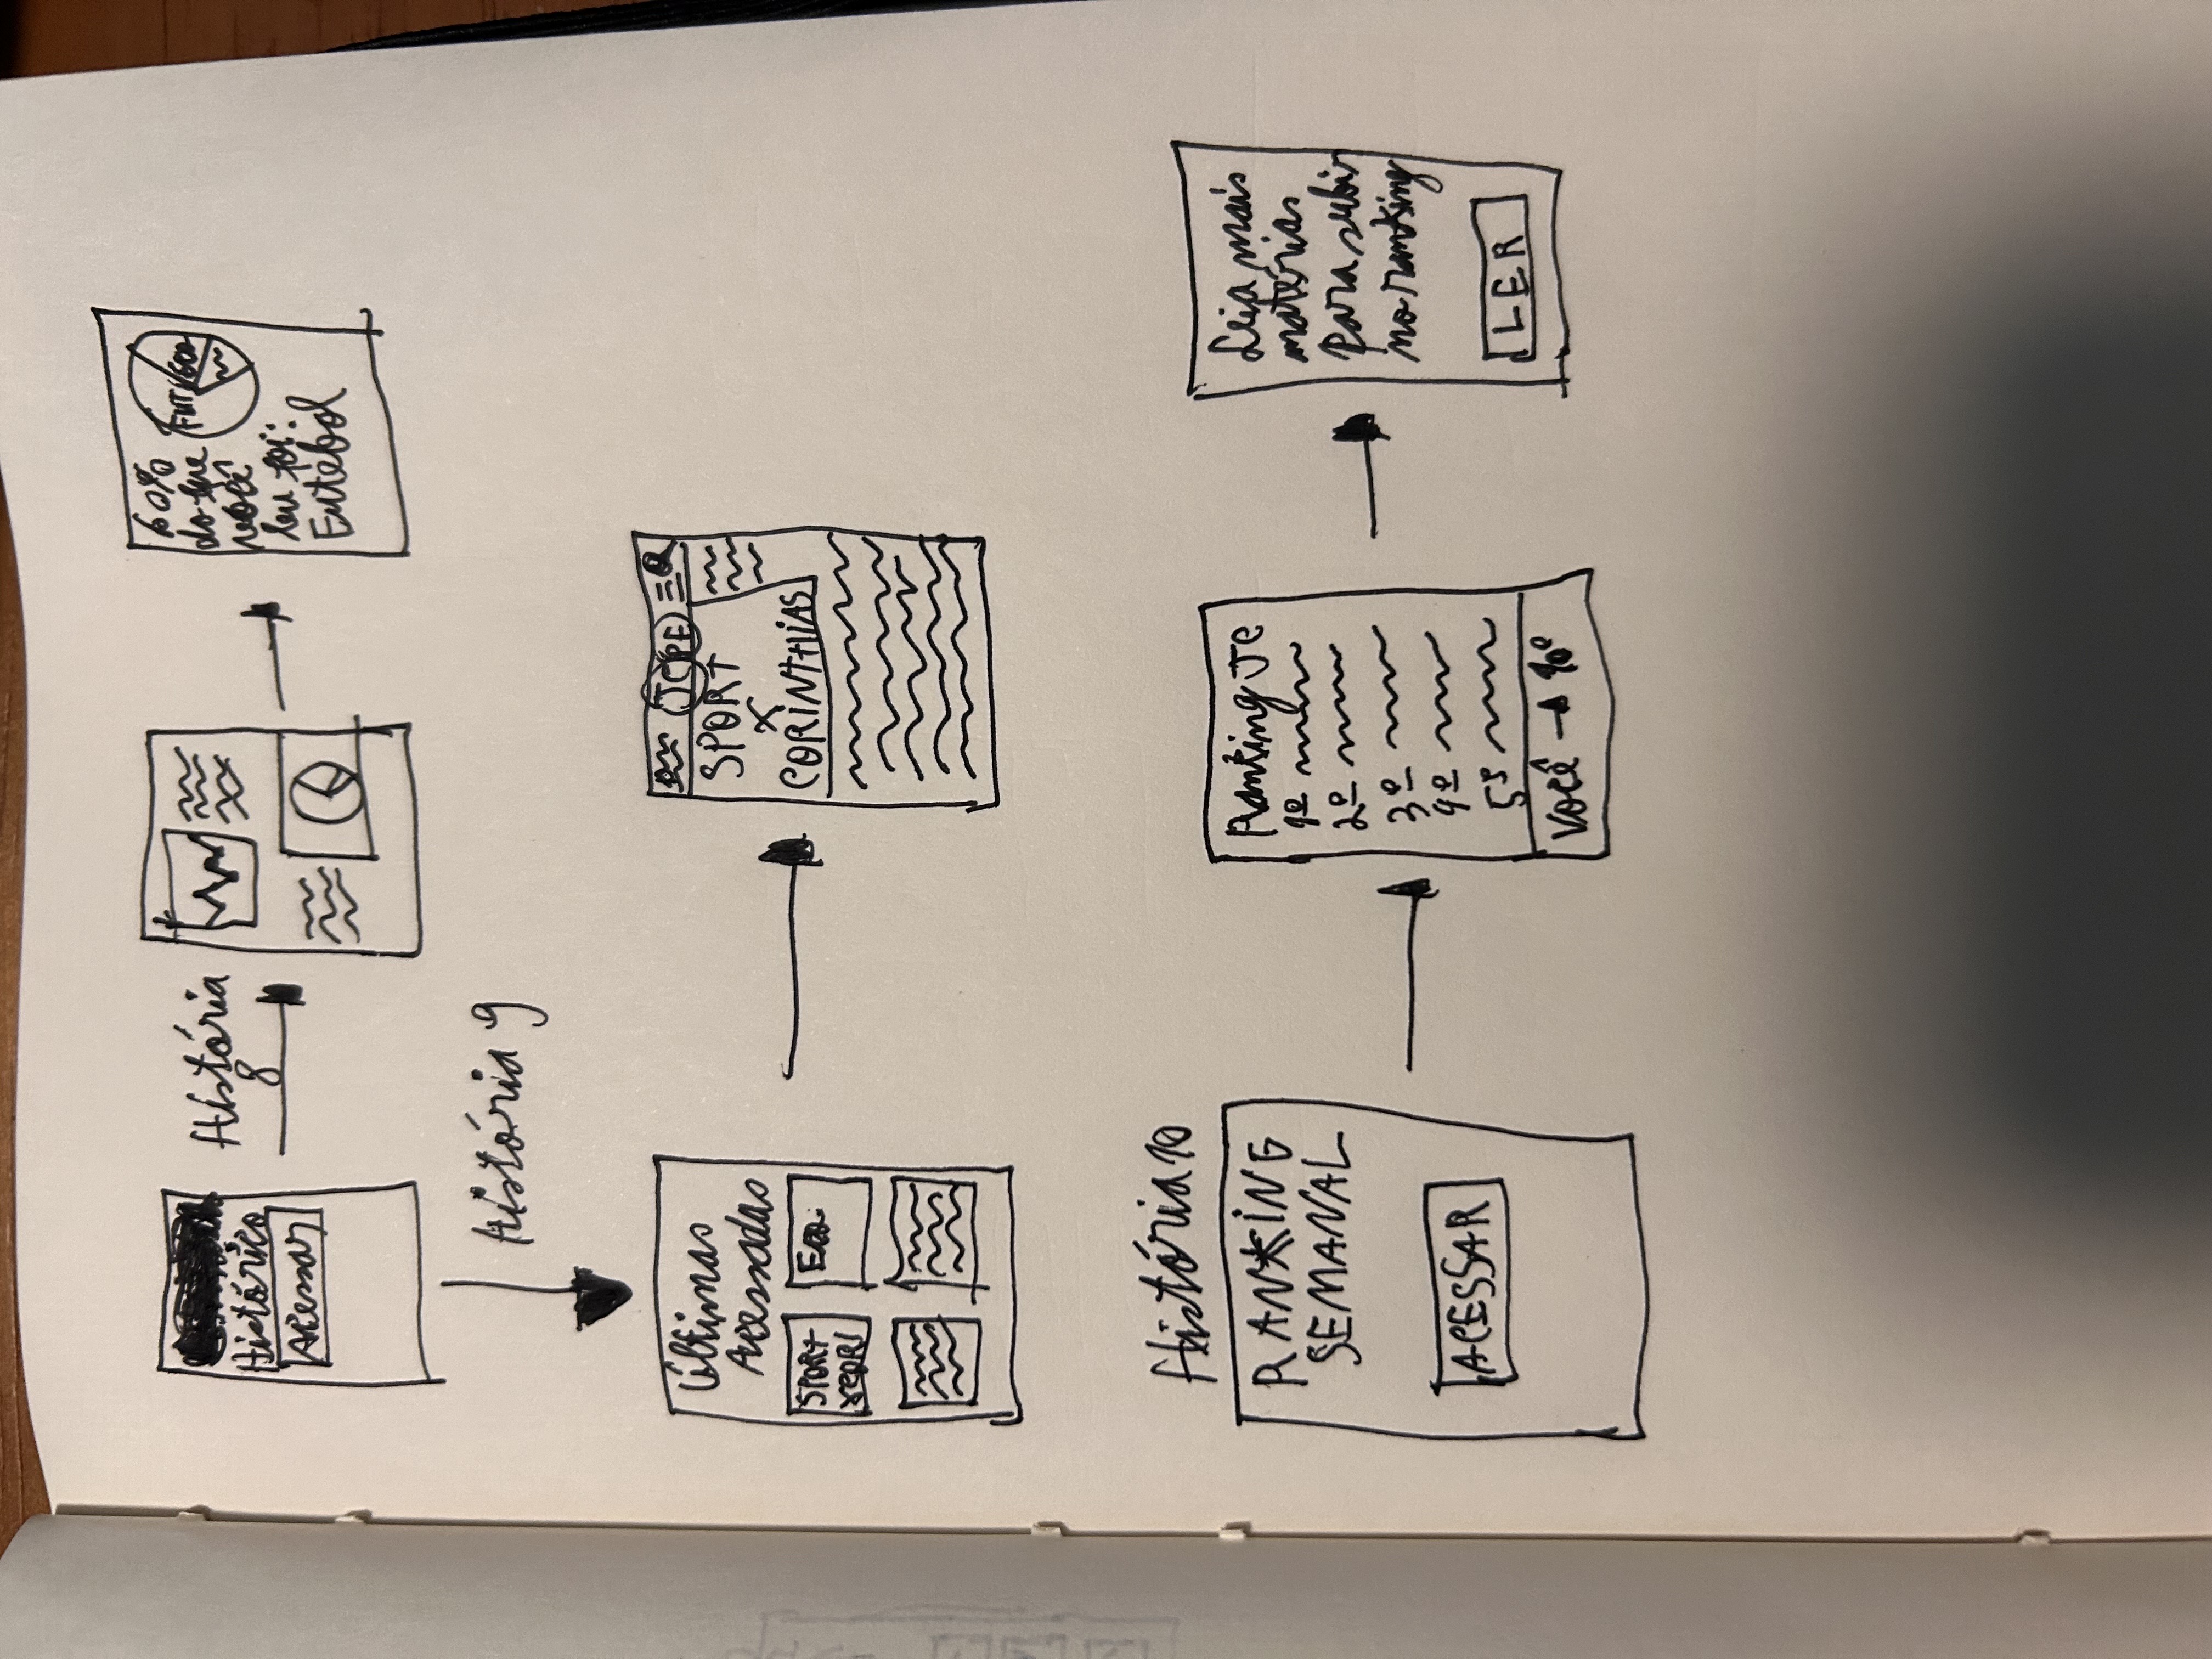 Histórico
Acessar
História
8
60%
do que
você
leu foi:
Futebol
FUT
História 9
Últimas
Acessadas
SPORT
Eco.
JC PE
SPORT
X
CORINTHIAS
História 10
RANKING
SEMANAL
ACESSAR
Ranking JC
1º
2º
3º
4º
5º
Você → 10º
Leia mais
matérias
para subir
no ranking
LER